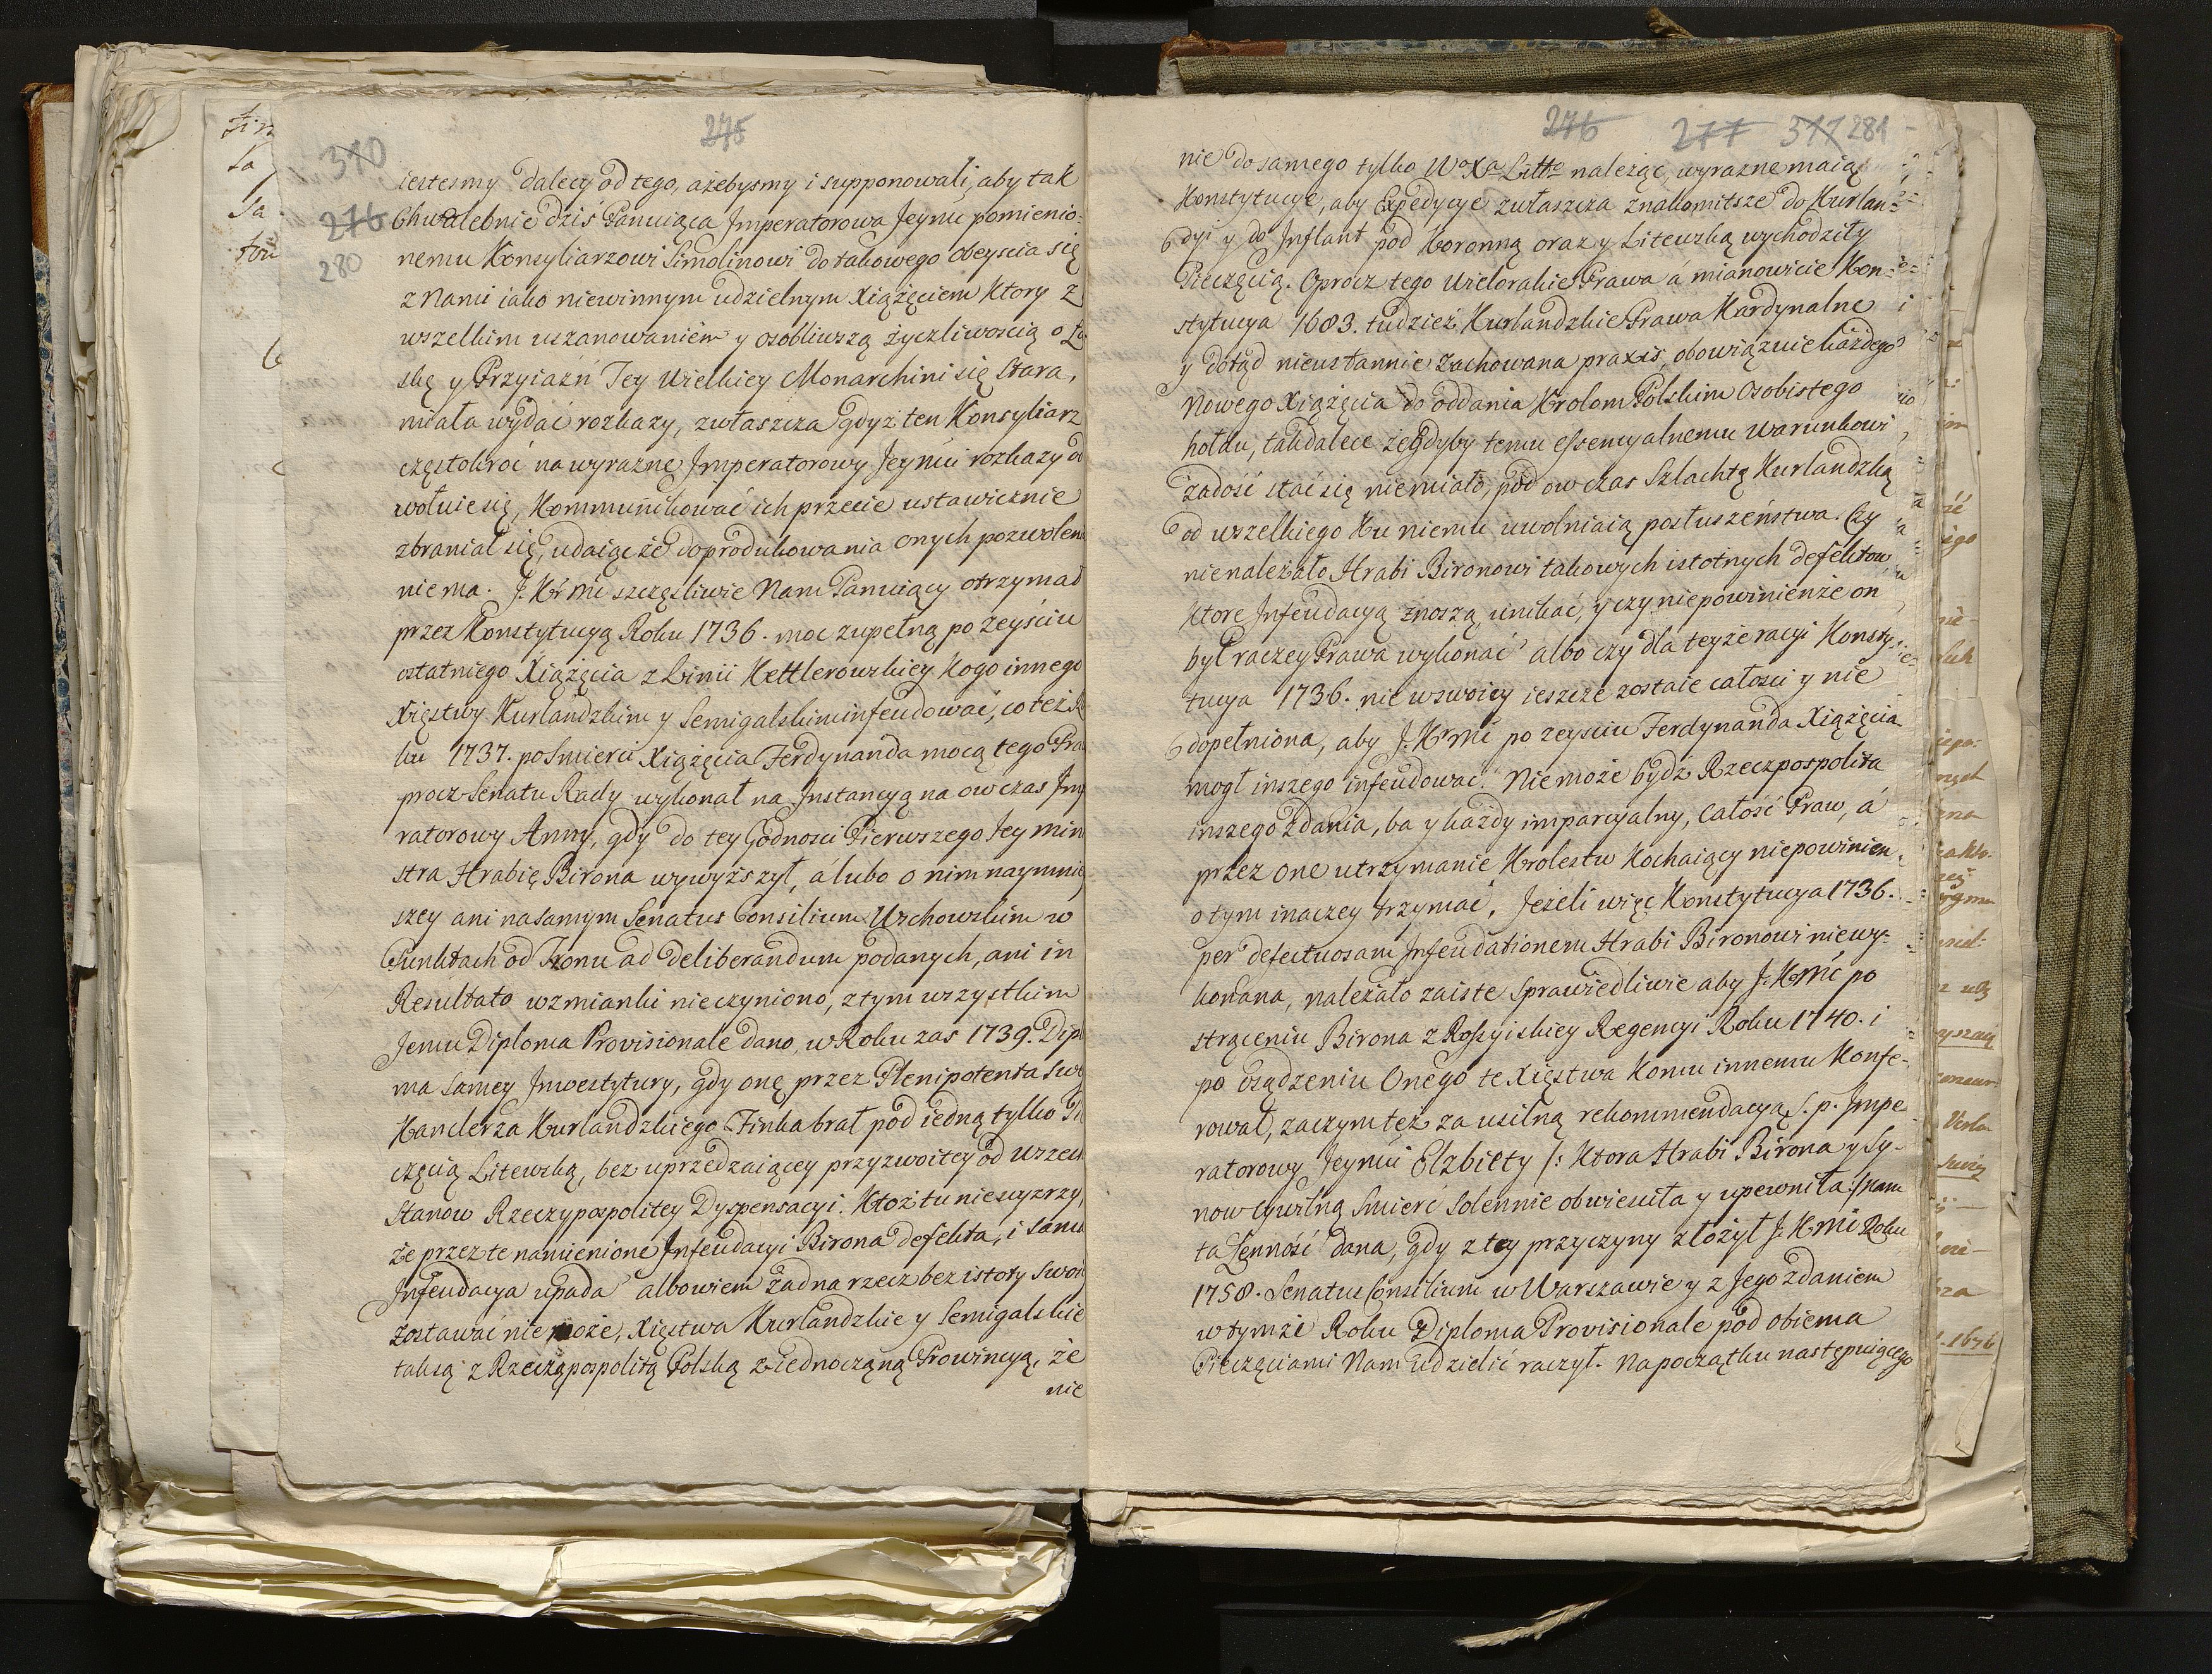 275
310
276
280
iestesmy dalecy od tego, ażebysmy i supponowali, aby tak
Chwalebnie dziś Panuiąca Imperatorowa Jeymć pomienio=
nemu Konsyliarzowi Simolinowi do takowego obeyscia się
z Nami iako niewinnym udzielnym Xiążęciem Ktory z
wszelkim uszanowaniem y osobliwszą życzliwoscią o Ła
skę y Przyiaźń Jey Wielkiey Monarchini się Stara,
miała wydać rozkazy, zwłaszcza gdyż ten Konsyliarz
częstokroć na wyrazne Imperatorowy Jeymci rozkazy od
wołuie się, Kommunikować ich przecie ustawicznie
zbraniał się, udaiąc że do produkowania onych pozwolen
nie ma. J. Kr mć szczęsliwie Nam Panuiący otrzymał
przez Konstytucyą Roku 1736. moc zupełną po zeyściu
ostatniego Xiążęcia z Linii Kettlerowskiey Kogo innego
Xięstwy Kurlandzkim y Semigalskim infeudować, co też R
ku 1737. po Smierci Xiążęcia Ferdynanda mocą tego Pra
procz Senatu Rady wykonał na Instancyą na ow czas Imp
ratorowy Anny, gdy do tey Godnosci Pierwszego Jey Min
stra Hrabię Birona wywyższył, á lubo o nim naymniey
szey ani na samym Senatus Consilium Wschowskim w
Punktach od Tronu ad deliberandum podanych, ani in
Resultato wzmianki nie czyniono, z tym wszystkim
Jemu Diploma Provisionale dano, w Roku zas 1739. Dipl
ma samey Inwestytury, gdy onę przez Plenipotenta swe
Kanclerza Kurlandzkiego Finka brał pod iedną tylko Pi
częcią Litewską, bez uprzedzaiącey przyzwoitey od wszech
Stanow Rzeczypospolitey Dyspensacyi. Ktoż tu nie wyzrzy,
że przez te namienione Infeudacyi Birona defekta, i sama
Infeudacya upada albowiem żadna rzecz bez istoty swoi
zostawać nie może, Xięstwa Kurlandzkie y Semigalskie
tak są z Rzecząpospolitą Polską ziednoczoną Prowincyą, że
nie
276 277 311 281
nie do samego tylko Wo Xa Litto należąc, wyrazne maią
Konstytucye, aby Expedycye zwłaszcza znakomitsze do Kurlan=
dyi y do Inflant pod Koronną oraz y Litewską wychodziły
Pieczęcią. Oprocz tego Wielorakie Prawa á mianowicie Kon=
stytucya 1683. tudzież Kurlandzkie Prawa Kardynalne
y dotąd nieustannie zachowana praxis, obowiązuie każdego
Nowego Xiążęcia do oddania Krolom Polskim Osobistego
hołdu, tak dalece że gdyby temu essencyalnemu warunkowi
zadość stać się nie miało, pod ow czas Szlachtę Kurlandzką
od wszelkiego Ku niemu uwolniaią posłuszeństwa. Czy
nie należało Hrabi Bironowi takowych istotnych defektow
Ktore Infeudacyą znoszą, unikać, y czy nie powinienże on
był raczey Prawa wykonać albo czy dla teyże racyi Konsty
tucya 1736. nie w swoiey ieszcze zostaie całosci y nie
dopełniona, aby J. Kr mć po zeysciu Ferdynanda Xiążęcia
mogł inszego infeudować. Nie może bydź Rzeczpospolita
inszego zdania, ba y każdy imparcyalny, Całość Praw, á
przez one utrzymanie Krolestw Kochaiący niepowinien
o tym inaczey trzymać. Jeżeli więc Konstytucya 1736.
per defectuosam Infeudationem Hrabi Bironowi niewy=
konana, należało zaiste sprawiedliwie aby J. Kr mć po
strąceniu Birona z Rossyiskiey Regencyi Roku 1740. i
po osądzeniu Onego te Xięstwa Komu innemu Konfe-
rował, zaczym też za usilną rekommendacyą S. p. Impe
ratorowy Jeymći Elżbiety /: Ktora Hrabi Birona y Sy-
now cywilną Smierć solennie obwiesciła y upewniła :/ Nam
ta Lenność dana, gdy z tey przyczyny złożył J. Kr mć Roku
1758. Senatus Consilium w Warszawie y z Jego zdaniem
w tymże Roku Diploma Provisionale pod obiema
Pieczęciami Nam udzielić raczył. Na początku następuiącego